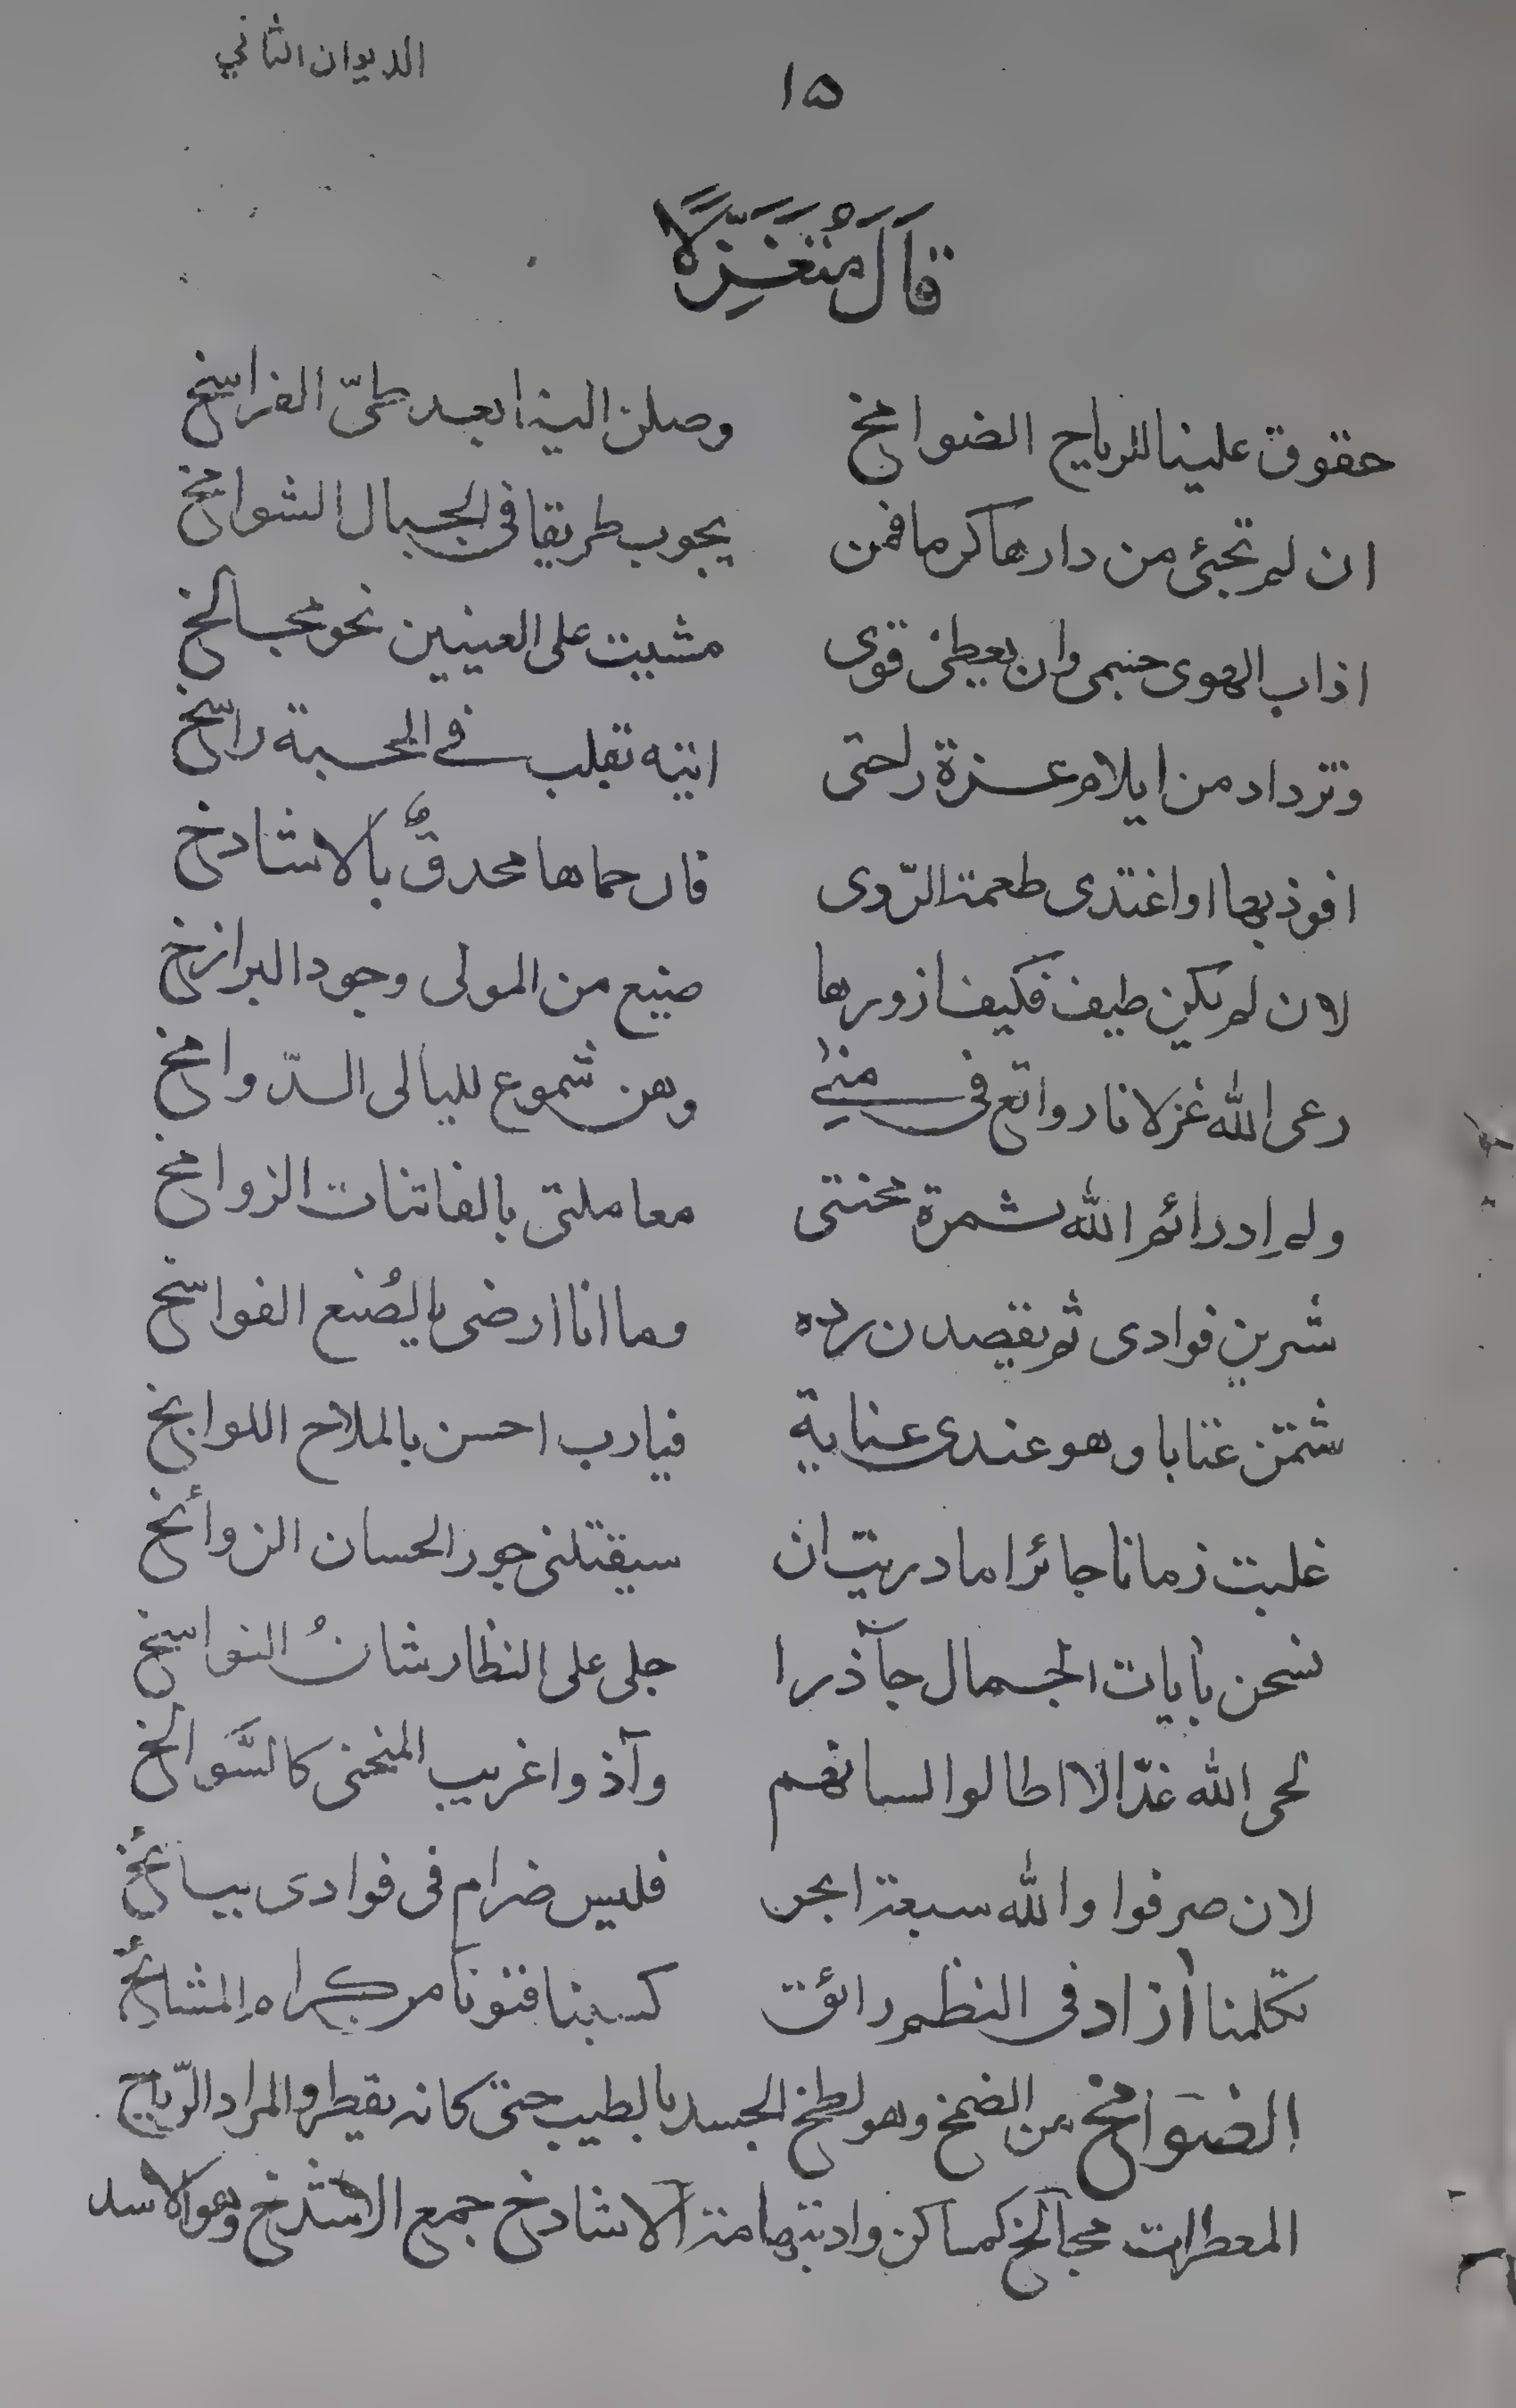 الديوان الثاني
١٥
قَالَ مُتَغَزِّلًا
حقوق علينا للرياح الضوامخ وصلن الينا بعد طىّ الفراسخ
ان لم تجئ من دارها كرما فمن يجوب طريقا فى الجبال الشوامخ
اذاب الهوى جسمى وان يعطنى قوى مشيت على العينين نحو مجالخ
وتزداد من ايلام عزة راحتى انتيه تقلب فى المحبة راسخ
افوز بها او اغتدى طعمة الرّدى فان حماها محدقٌ بالاشادخ
لان لم يكن طيف فكيف ازورها صنيع من المولى وجود البرازخ
رعى الله غزلانا رواتع فى منى وهن شموع لليالى الدّوامخ
وله ادرائم الله ثمرة محنتى معاملتى بالفاتنات الزوامخ
شرين فوادى ثم يقصدن رده وما انا ارضى بالصُنع الفواسخ
شمتن عتابا وهو عندى عناية فيارب احسن بالملاح اللوابخ
غلبت زمانا جائرا ما دريت ان سيقتلنى جور الحسان الزوأنخ
نسخن بأيات الجمال جآذرا جلى على النظار شانُ النواسخ
لحى الله عذّالا اطالوا لسانهم وآذوا غريب المنحنى كالسَّوالخ
لان صرفوا والله سبعة ابحر فليس ضرام فى فوادى ببائخ
تكلمنا أزاد فى النظم رائق كسبنا فنونا من كرام المشايخ
الضوامخ من الضمخ وهو لطخ الجسد بالطيب حتى كانه يقطر والمراد الرّياح
المعطرات مجالخ كمساكن واد بتهامة الاشادخ جمع الاشدخ وهو الاسد